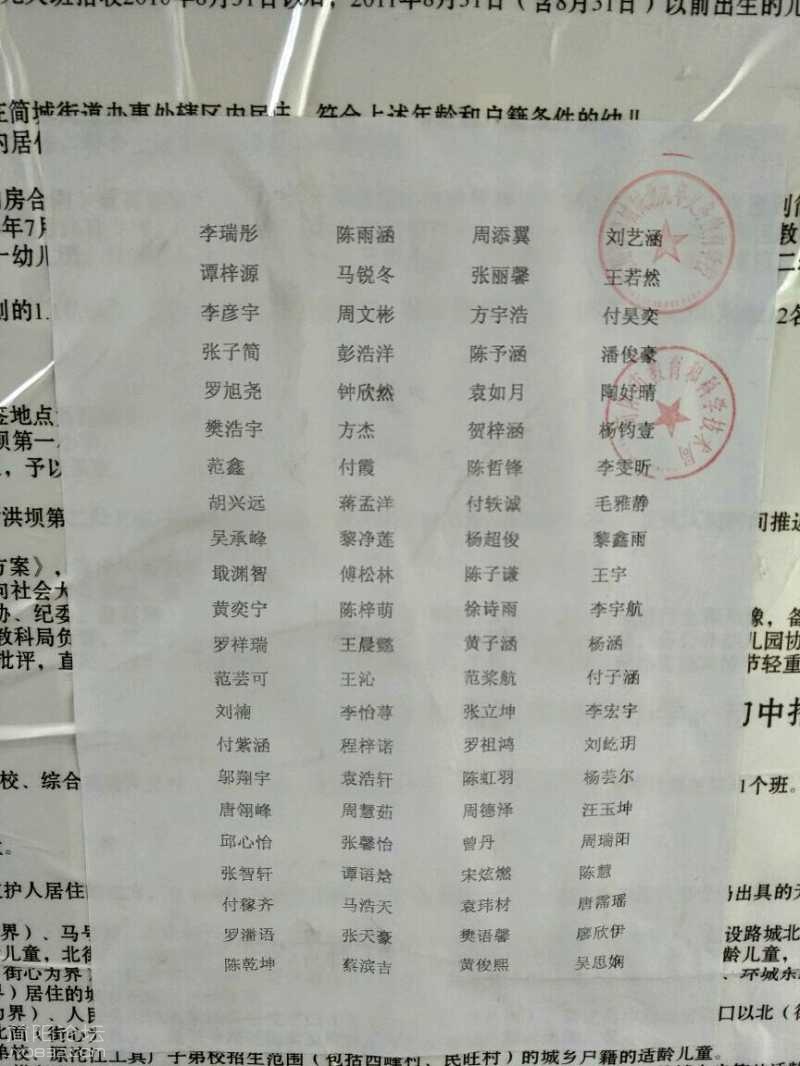 2010年8月31日以后，2011年8月31日（含8月31日）以前出生的儿
在简城街道办事处辖区内居住、符合上述年龄和户籍条件的幼儿
李瑞彤 陈雨涵 周添翼 刘艺涵
谭梓源 马锐冬 张丽馨 王若然
李彦宇 周文彬 方宇浩 付昊奕
张子简 彭浩洋 陈予涵 潘俊豪
罗旭尧 钟欣然 袁如月 陶好晴
樊浩宇 方杰 贺梓涵 杨钧壹
范鑫 付霞 陈哲锋 李雯昕
胡兴远 蒋孟洋 付轶诚 毛雅静
吴承峰 黎净莲 杨超俊 黎鑫雨
渊智 傅松林 陈子谦 王宇
黄奕宁 陈梓萌 徐诗雨 李宇航
罗祥瑞 王晨懿 黄子涵 杨涵
范芸可 王沁 范桨航 付子涵
刘楠 李怡荨 张立坤 李宏宇
付紫涵 程梓诺 罗祖鸿 刘屹玥
邬翔宇 袁浩轩 陈虹羽 杨芸尔
唐翎峰 周慧茹 周德泽 汪玉坤
邱心怡 张馨怡 曾丹 周瑞阳
张智轩 谭语焓 宋炫燃 陈慧
付稼齐 马浩天 袁玮材 唐霈瑶
罗潘语 张天豪 樊语馨 廖欣伊
陈乾坤 蔡滨吉 黄俊熙 吴思娴
市教育和科学技术局
内居住
房合
年7月
一幼儿
划的1.
签地点
坝第一
，予以
洪坝第
方案》，
向社会大
办、纪委
教科局负
批评，直
校、综合
护人居住
界）、马号
儿童，北街
街心为界
）居住的城
为界）、人民
北面（街心
单校
原沱江工具厂子弟校招生范围（包括西峰村、民旺村）的城乡户籍的适龄儿童。
2名
间推迟
像，备
儿园协
节轻重
初中招
1个班。
局出具的无
设路城北
龄儿童，
、环城东
口以北（街